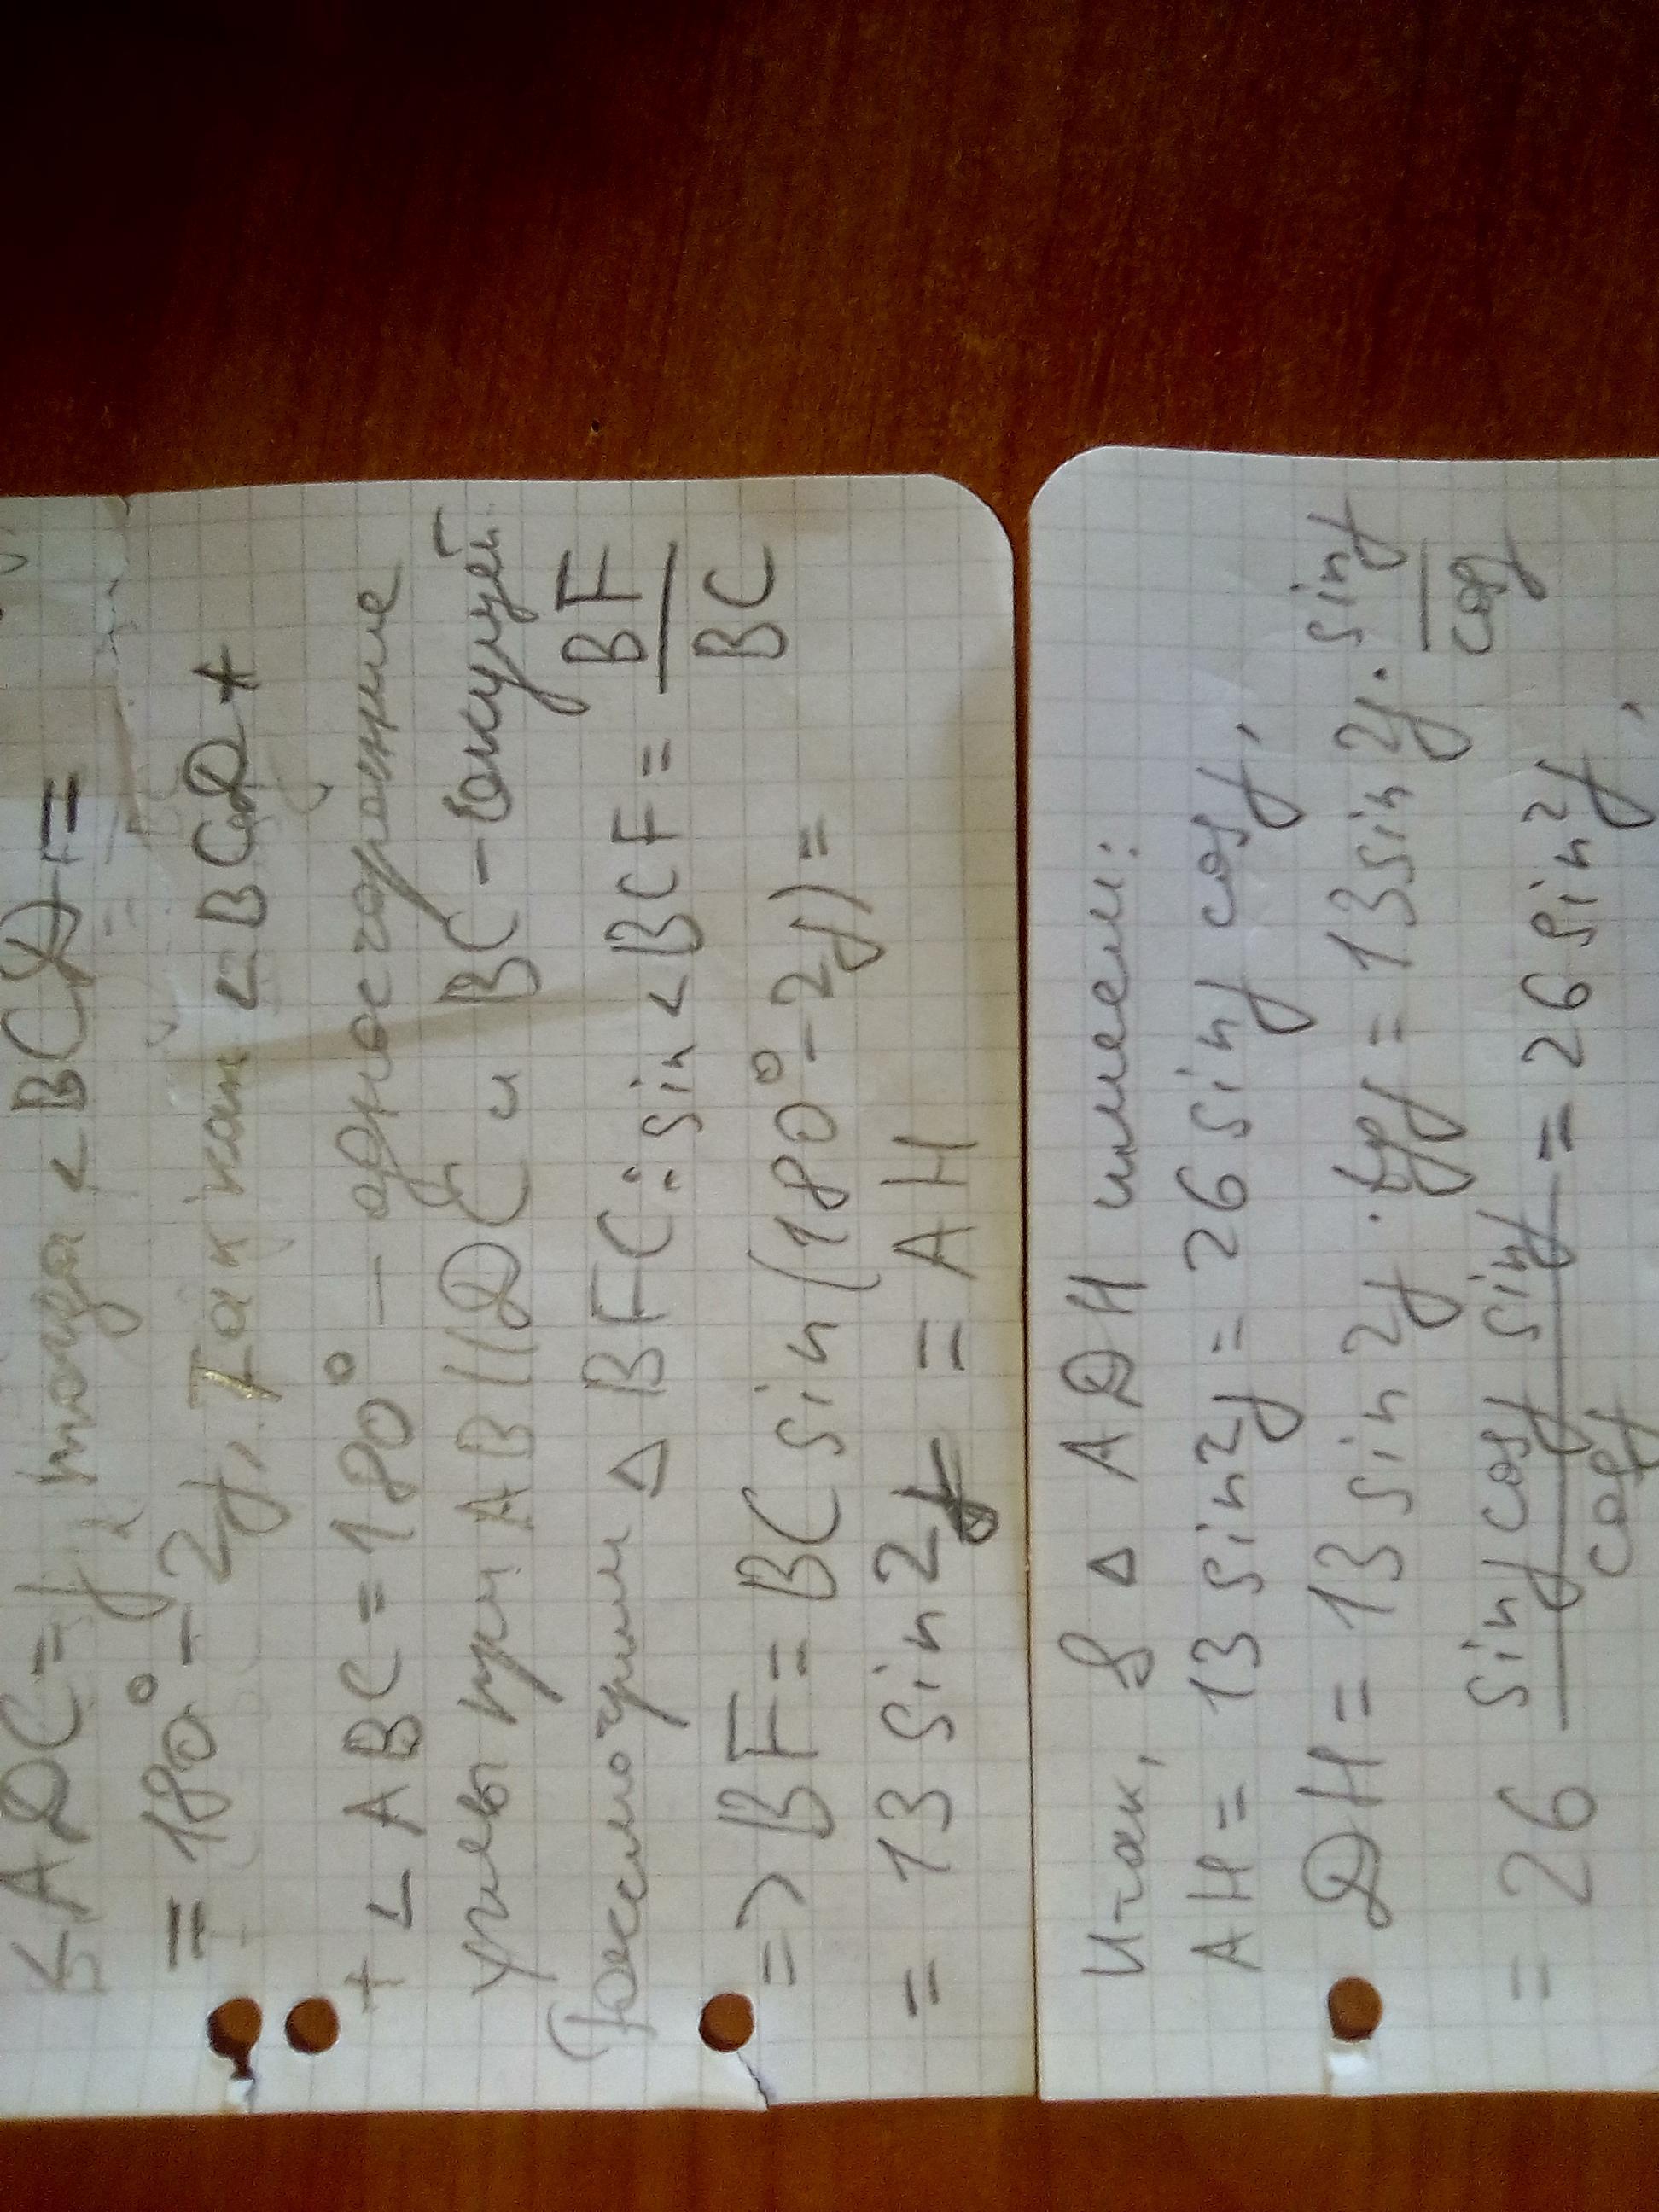 ∠ADC = y, тогда ∠BCD =
= 180° - 2y. Так как ∠BCD +
+ ∠ABC = 180° — односторонние
углы при AB || DC и BC - секущей.
Рассмотрим △ BFC: sin ∠BCF = BF/BC
=> BF = BC sin(180° - 2y) =
= 13 sin 2y = AH
Итак, в △ ADH имеем:
AH = 13 sin 2y = 26 sin y cos y,
DH = 13 sin 2y · tg y = 13 sin 2y · sin y/cos y
= 26 sin y cos y sin y/cos y = 26 sin² y,